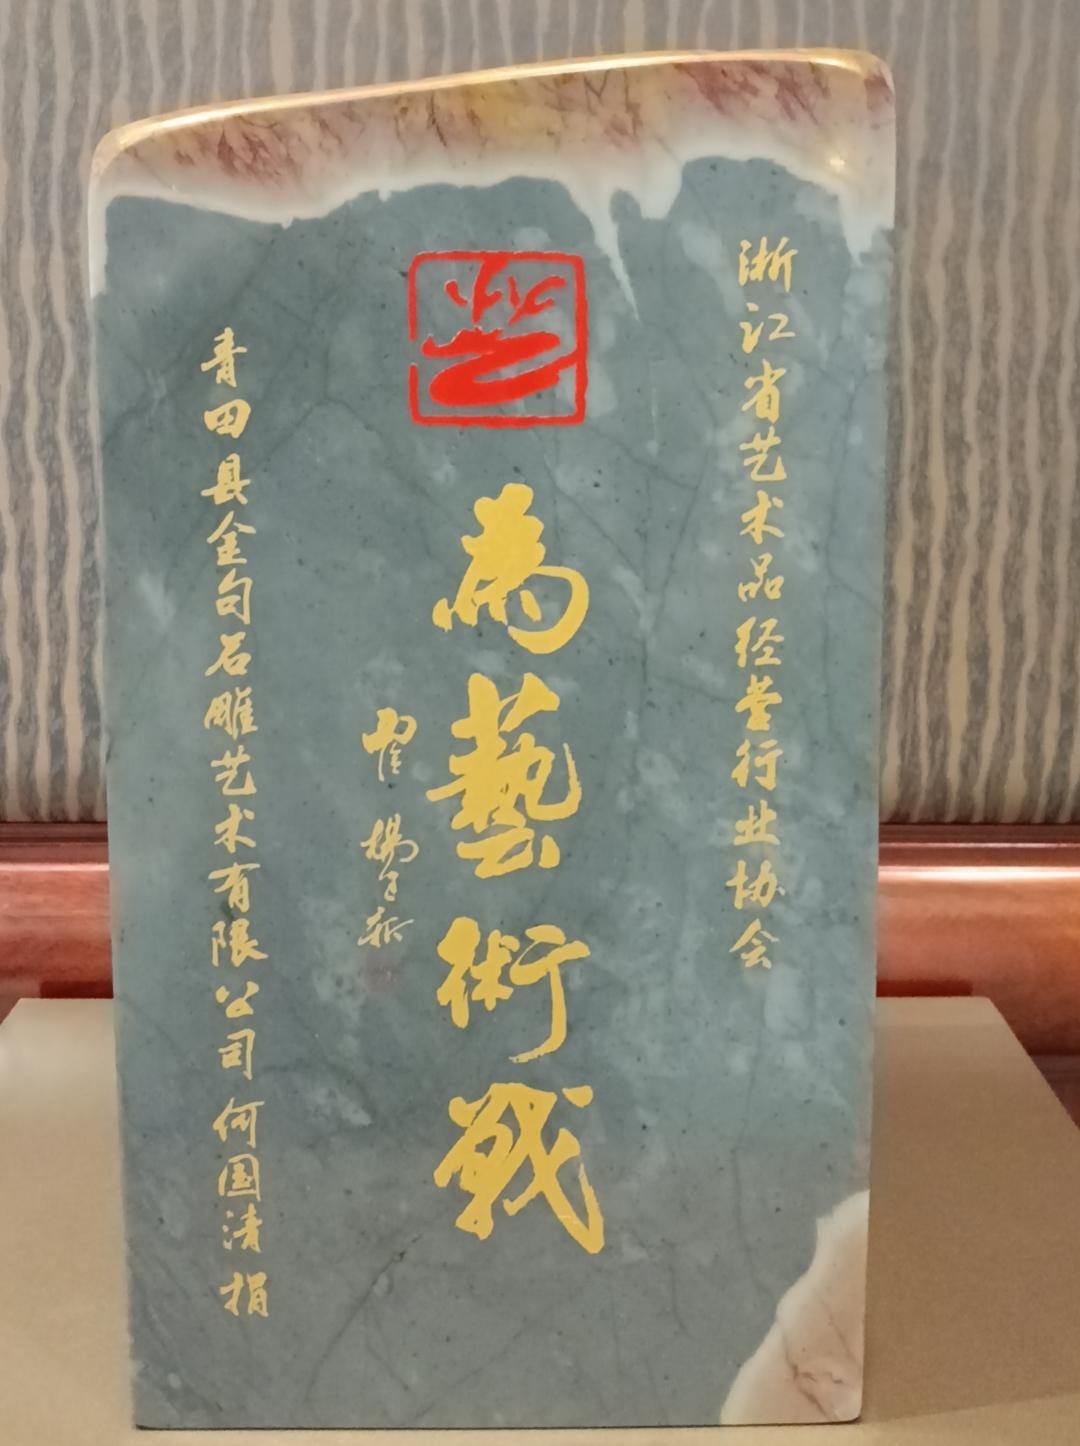 浙江省艺术品经营行业协会
為藝術戰
青田县金句石雕艺术有限公司 何国清 捐